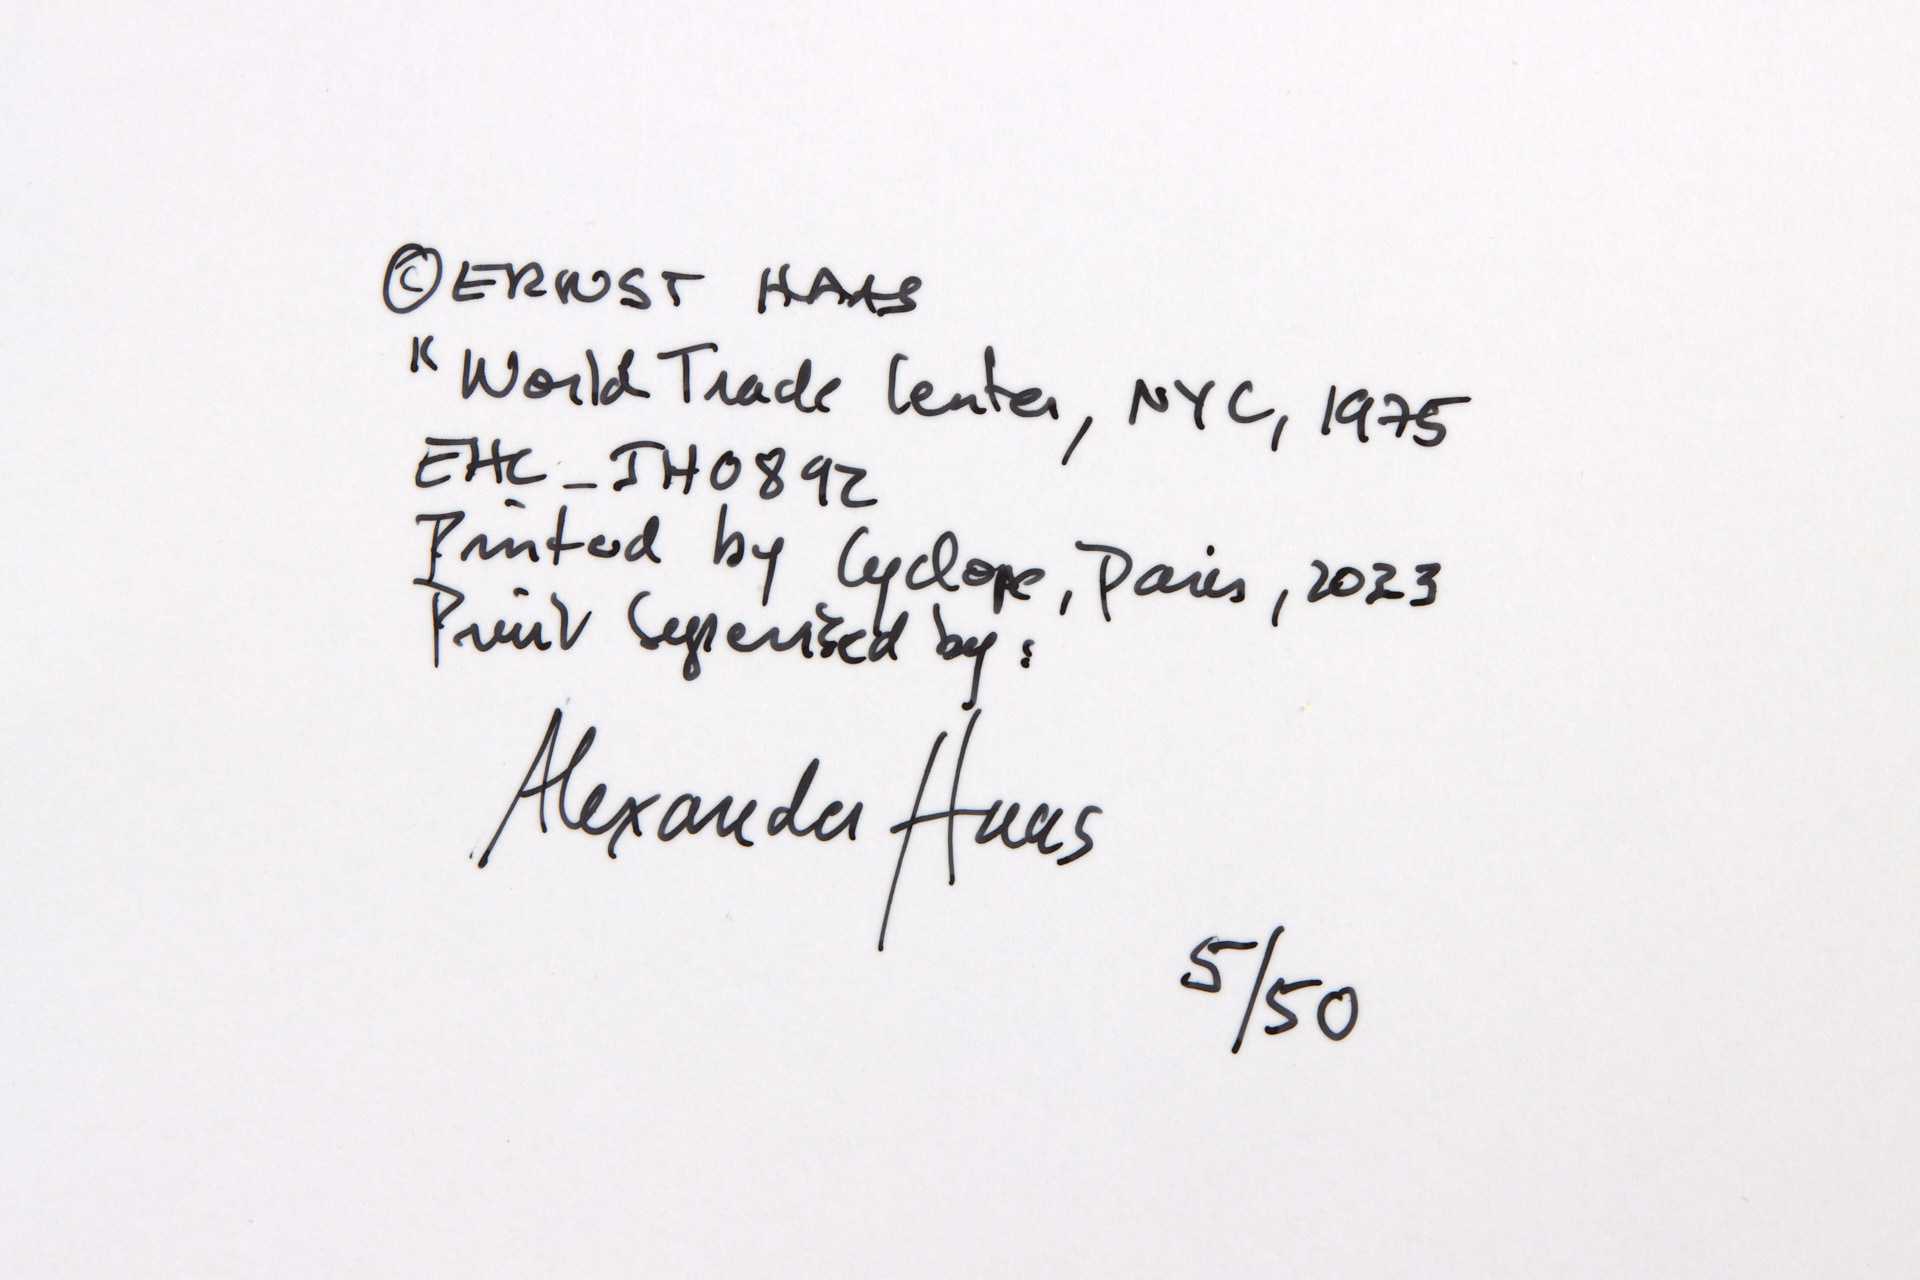 © ERNST HAAS
"World Trade Center, NYC, 1975
EHC_IH0892
Printed by Cyclope, Paris, 2023
Print Supervised by:
Alexander Haas
5/50